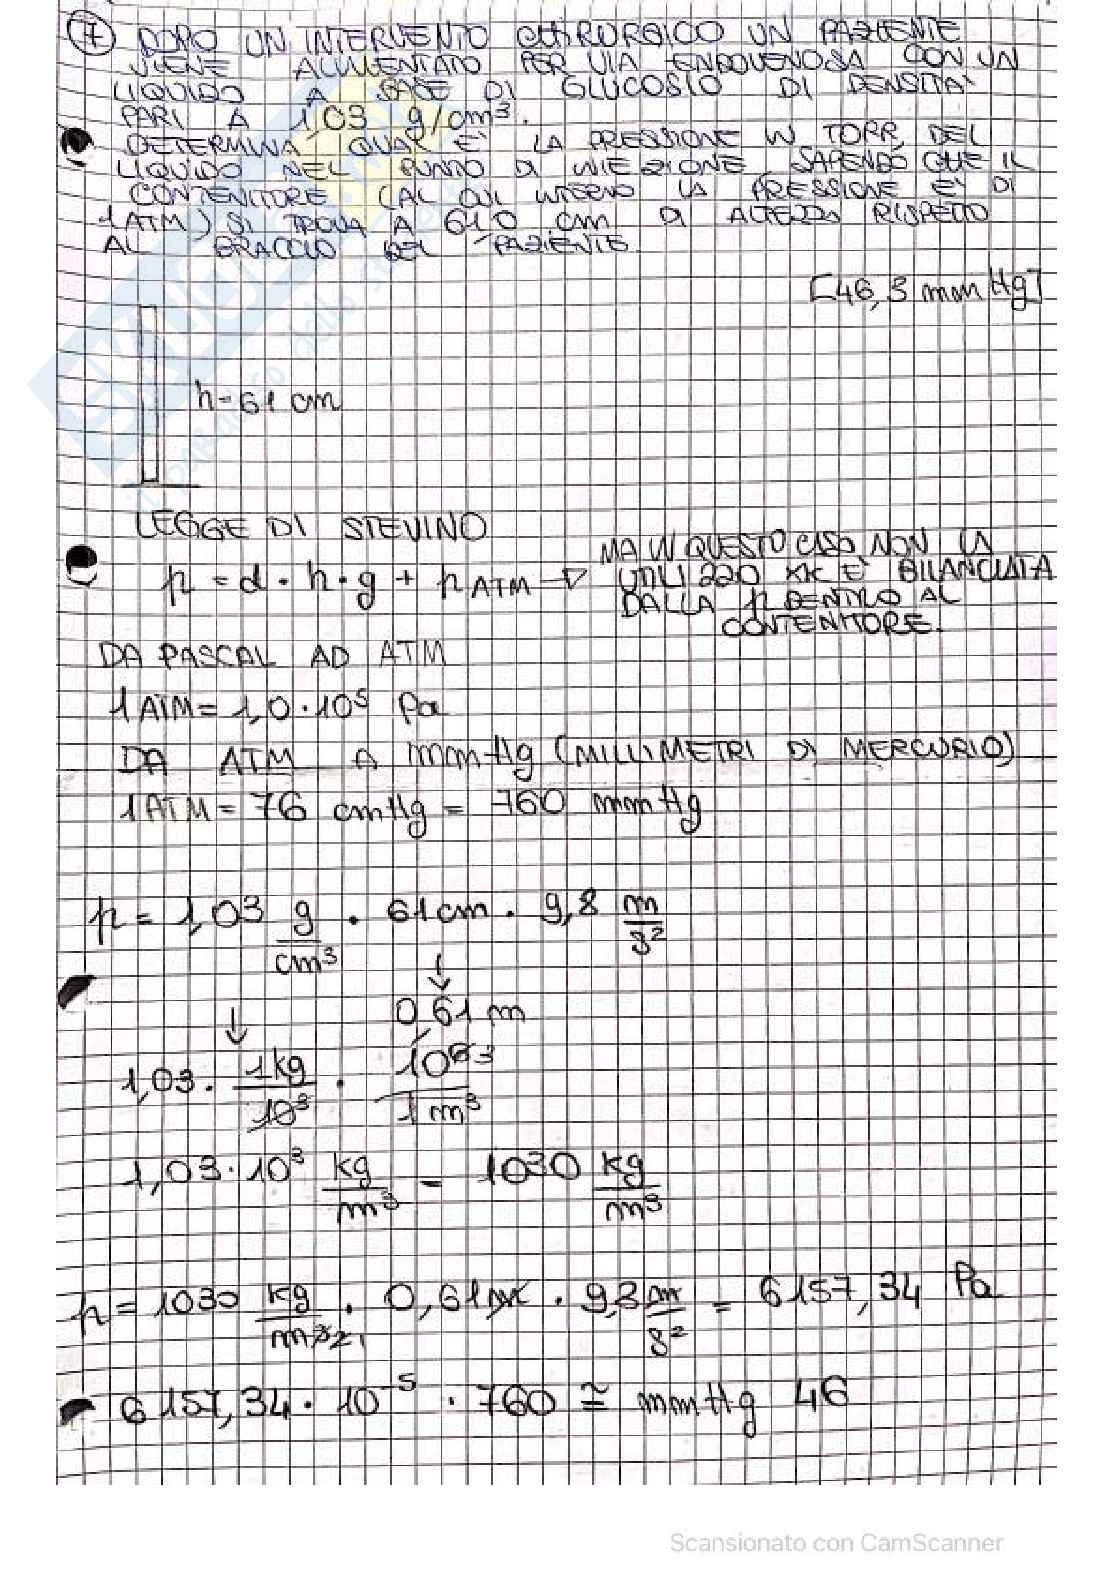 7 DOPO UN INTERVENTO CHIRURGICO UN PAZIENTE
VIENE ALIMENTATO PER VIA ENDOVENOSA CON UN
LIQUIDO A BASE DI GLUCOSIO DI DENSITÀ
PARI A 1,03 g/cm³.
DETERMINA QUAL È LA PRESSIONE IN TORR DEL
LIQUIDO NEL PUNTO DI INIEZIONE SAPENDO CHE IL
CONTENITORE (AL CUI INTERNO LA PRESSIONE È DI
1ATM) SI TROVA A 61,0 cm DI ALTEZZA RISPETTO
AL BRACCIO DEL PAZIENTE.
[46,3 mmHg]
h=61 cm
LEGGE DI STEVINO
p = d · h · g + p ATM → MA IN QUESTO CASO NON LA
UTILIZZO XK È BILANCIATA
DALLA p DENTRO AL
CONTENITORE.
DA PASCAL AD ATM
1ATM = 1,0 · 10⁵ Pa
DA ATM A mmHg (MILLIMETRI DI MERCURIO)
1ATM = 76 cmHg = 760 mmHg
p = 1,03 g/cm³ · 61cm · 9,8 m/s²
↓ 0,61 m
↓
1,03 · 1kg/10³ · 10⁶³/1m³
1,03 · 10³ kg/m³ = 1030 kg/m³
p = 1030 kg/m³² · 0,61m · 9,8 m/s² = 6157,34 Pa
6157,34 · 10⁻⁵ · 760 ≅ mmHg 46
Scansionato con CamScanner